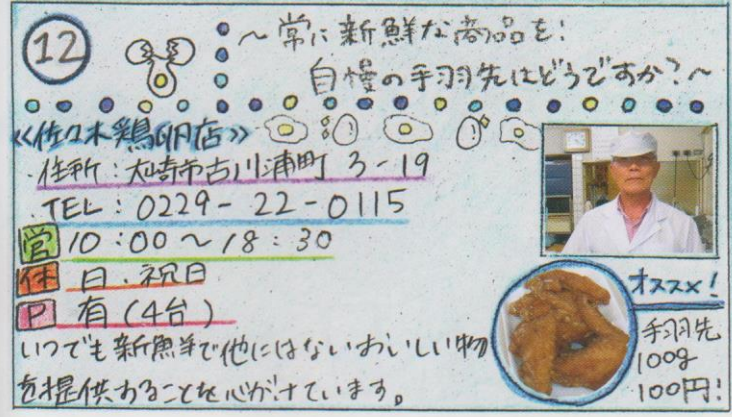 12
～常に新鮮な商品を!
自慢の手羽先はどうですか?～
《佐々木鶏卵店》
住所:大崎市古川浦町 3-19
TEL:0229-22-0115
営 10:00～18:30
休 日・祝日
P 有(4台)
いつでも新鮮で他にはないおいしい物
を提供することを心がけています。
オススメ!
手羽先
100g
100円!